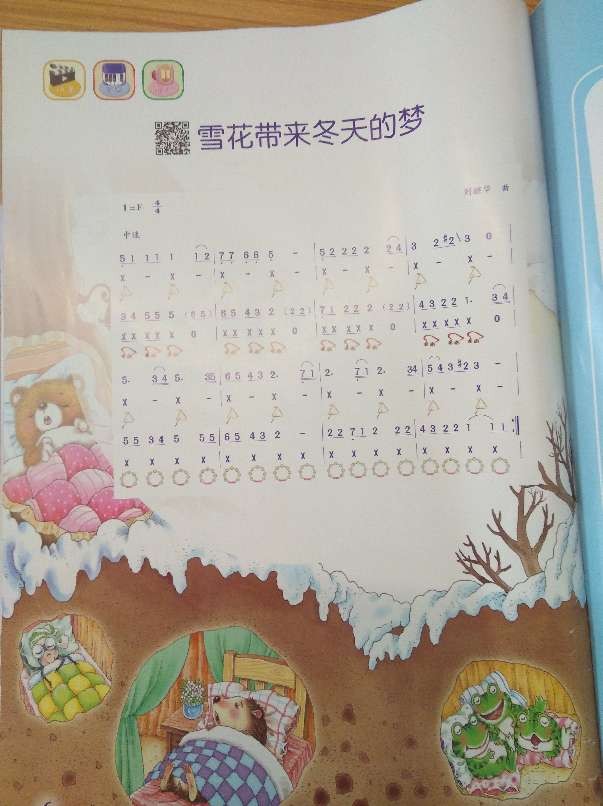 雪花带来冬天的梦
1=F 4/4
曲
中速
5 1 1 1 1 1 2 | 7 7 6 6 5 - | 5 2 2 2 2 2 4 | 3 2 #2 \ 3 0 |
X - X - | X - X - | X - X - | X - X - |
3 4 5 5 5 (6 5) | 6 5 4 3 2 (2 2) | 7 1 2 2 2 (2 2) | 4 3 2 2 1. 3 4 |
X X X X X 0 | X X X X X 0 | X X X X X 0 | X X X X X 0 |
5. 3 4 5. 3 5 | 6 5 4 3 2. 7 1 | 2. 7 1 2. 3 4 | 5 4 3 #2 3 - |
X - X - | X - X - | X - X - | X - X - |
5 5 3 4 5 5 5 | 6 5 4 3 2 - | 2 2 7 1 2 2 2 | 4 3 2 2 1 1 1 :|
X X X X | X X X X | X X X X | X X X X